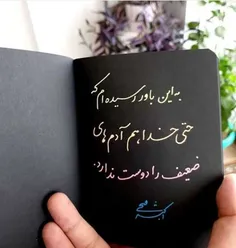 به این باور رسیده ام که
حتی خدا هم آدم های
ضعیف را دوست ندارد.